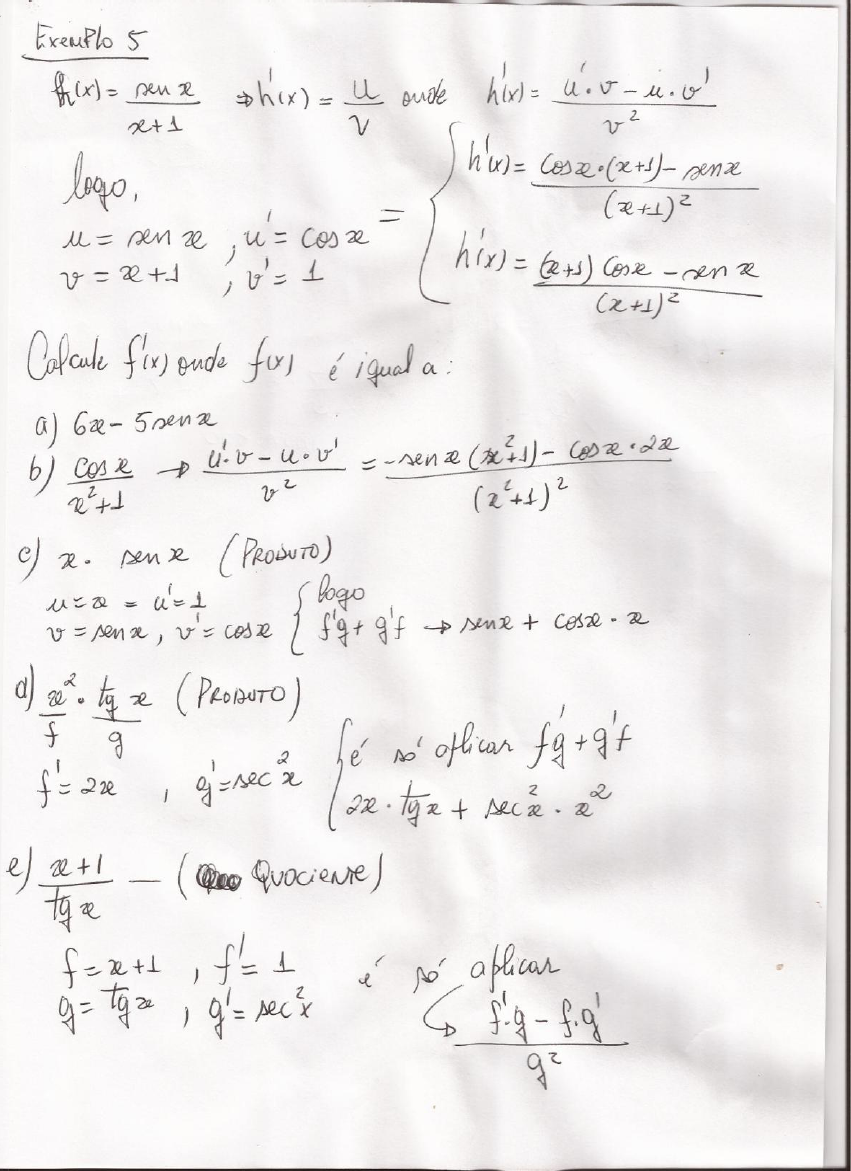 Exemplo 5
h(x) = sen x / x+1 ⇒ h'(x) = u / v onde h'(x) = u'·v − u·v' / v²
logo,
u = sen x , u' = cos x
v = x+1 , v' = 1
= { h'(x) = cos x·(x+1) − sen x / (x+1)²
h'(x) = (x+1) cos x − sen x / (x+1)²
Calcule f'(x) onde f(x) é igual a:
a) 6x − 5 sen x
b) cos x / x²+1 → u'·v − u·v' / v² = −sen x (x²+1) − cos x · 2x / (x²+1)²
c) x · sen x (PRODUTO)
u = x = u' = 1
v = sen x , v' = cos x
{ logo
f'g + g'f → sen x + cos x · x
d) x² · tg x (PRODUTO)
f g
f' = 2x , g' = sec² x
{ é só aplicar f'g + g'f
2x · tg x + sec² x · x²
e) x+1 / tg x — (QUOCIENTE)
f = x+1 , f' = 1
g = tg x , g' = sec² x
é só aplicar
f'·g − f·g' / g²